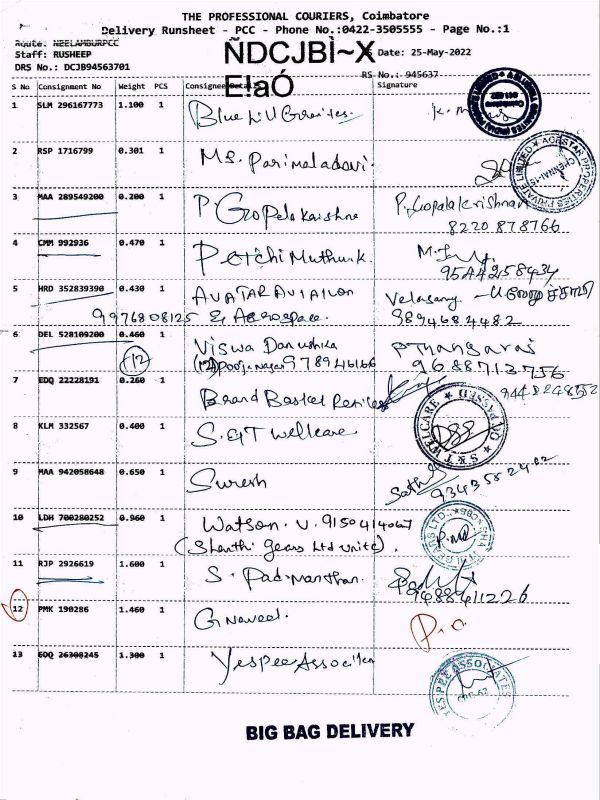 THE PROFESSIONAL COURIERS, Coimbatore
Delivery Runsheet - PCC - Phone No.:0422-3505555 - Page No.:1
Route: NEELAMBURPCC
Staff: RUSHEEP
DRS No.: DCJB94563701
ÑDCJBÌ~X
E!aÓ
Date: 25-May-2022
RS No.: 945637
S No Consignment No Weight PCS Consignee Details Signature
1 SLM 296167773 1.100 1
2 RSP 1716799 0.301 1 Ms. Parimaladevi
3 MAA 289549200 0.200 1 P. Gopalakrishna P. Gopalakrishnan
8220878766
4 CMM 992936 0.470 1
9544258434
5 HRD 352839390 0.430 1 AVATAR AVIATION Velasamy
9976808125 & Aerospace. 9894684482
6 DEL 528109200 0.460 1 Viswa Danushka P Thangaraj
(12) 9688713756
7 EDQ 22228191 0.260 1 9448248552
8 KLM 332567 0.400 1 S & T Wellcare
S&T WELCARE
9 MAA 942058648 0.650 1 Suresh
10 LDH 700280252 0.960 1 Watson. V. 9150414067
(Shanthi Gears Ltd unit 2).
11 RJP 2926619 1.600 1 S. Padmanathan
9488411226
12 PMK 190286 1.460 1 G Naveel
13 EDQ 26300245 1.300 1 Yespee Associates
YES PEE ASSOCIATES
BIG BAG DELIVERY